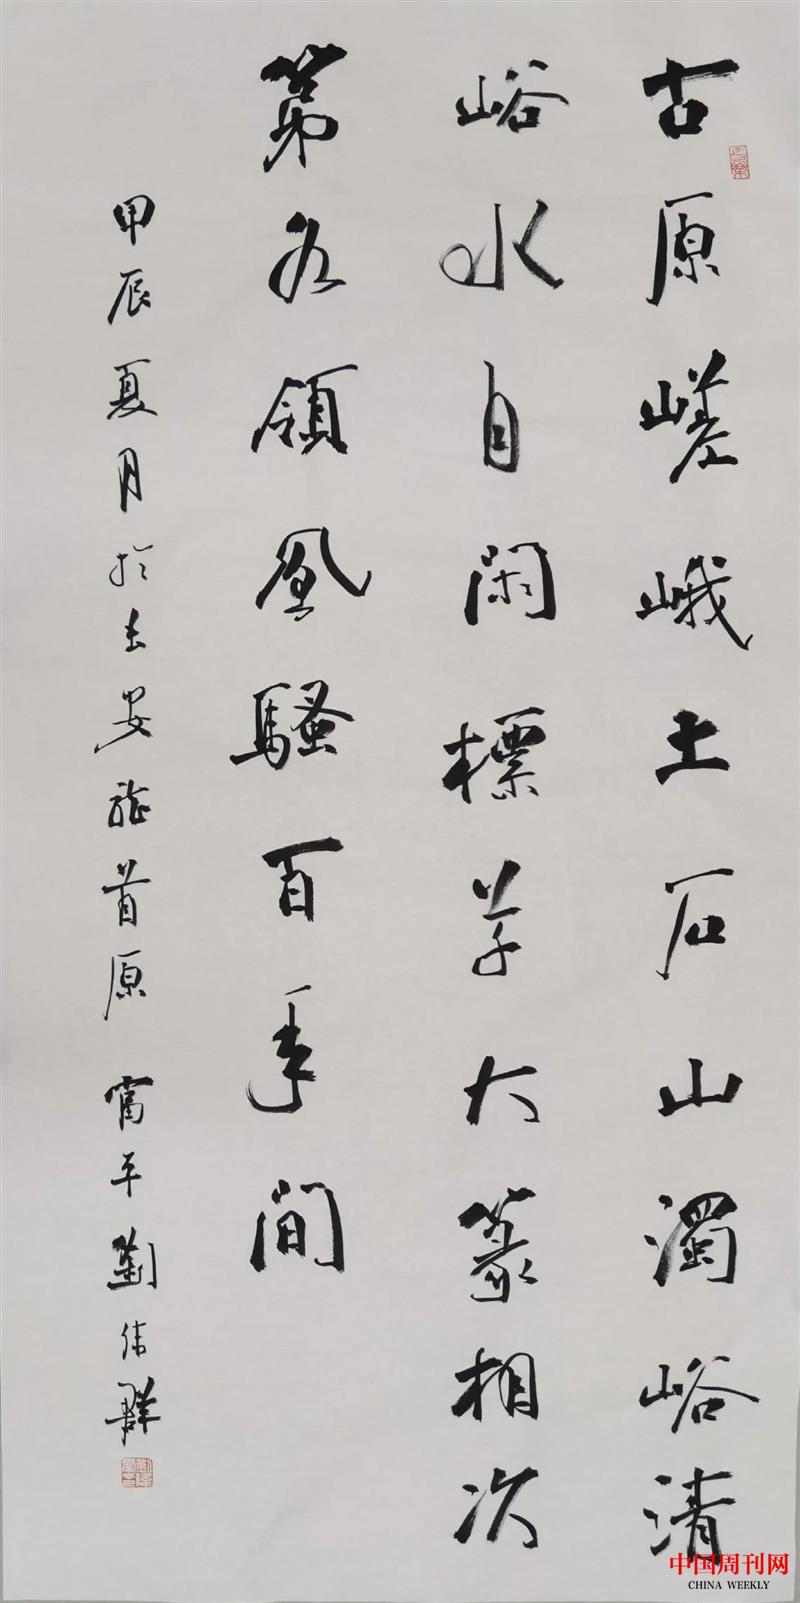 古原嵯峨土石山濁峪清
峪水自閑標草大篆相次
第各領風騷百年間
甲辰夏月於長安龍首原 富平劉偉群
中国周刊网
CHINA WEEKLY